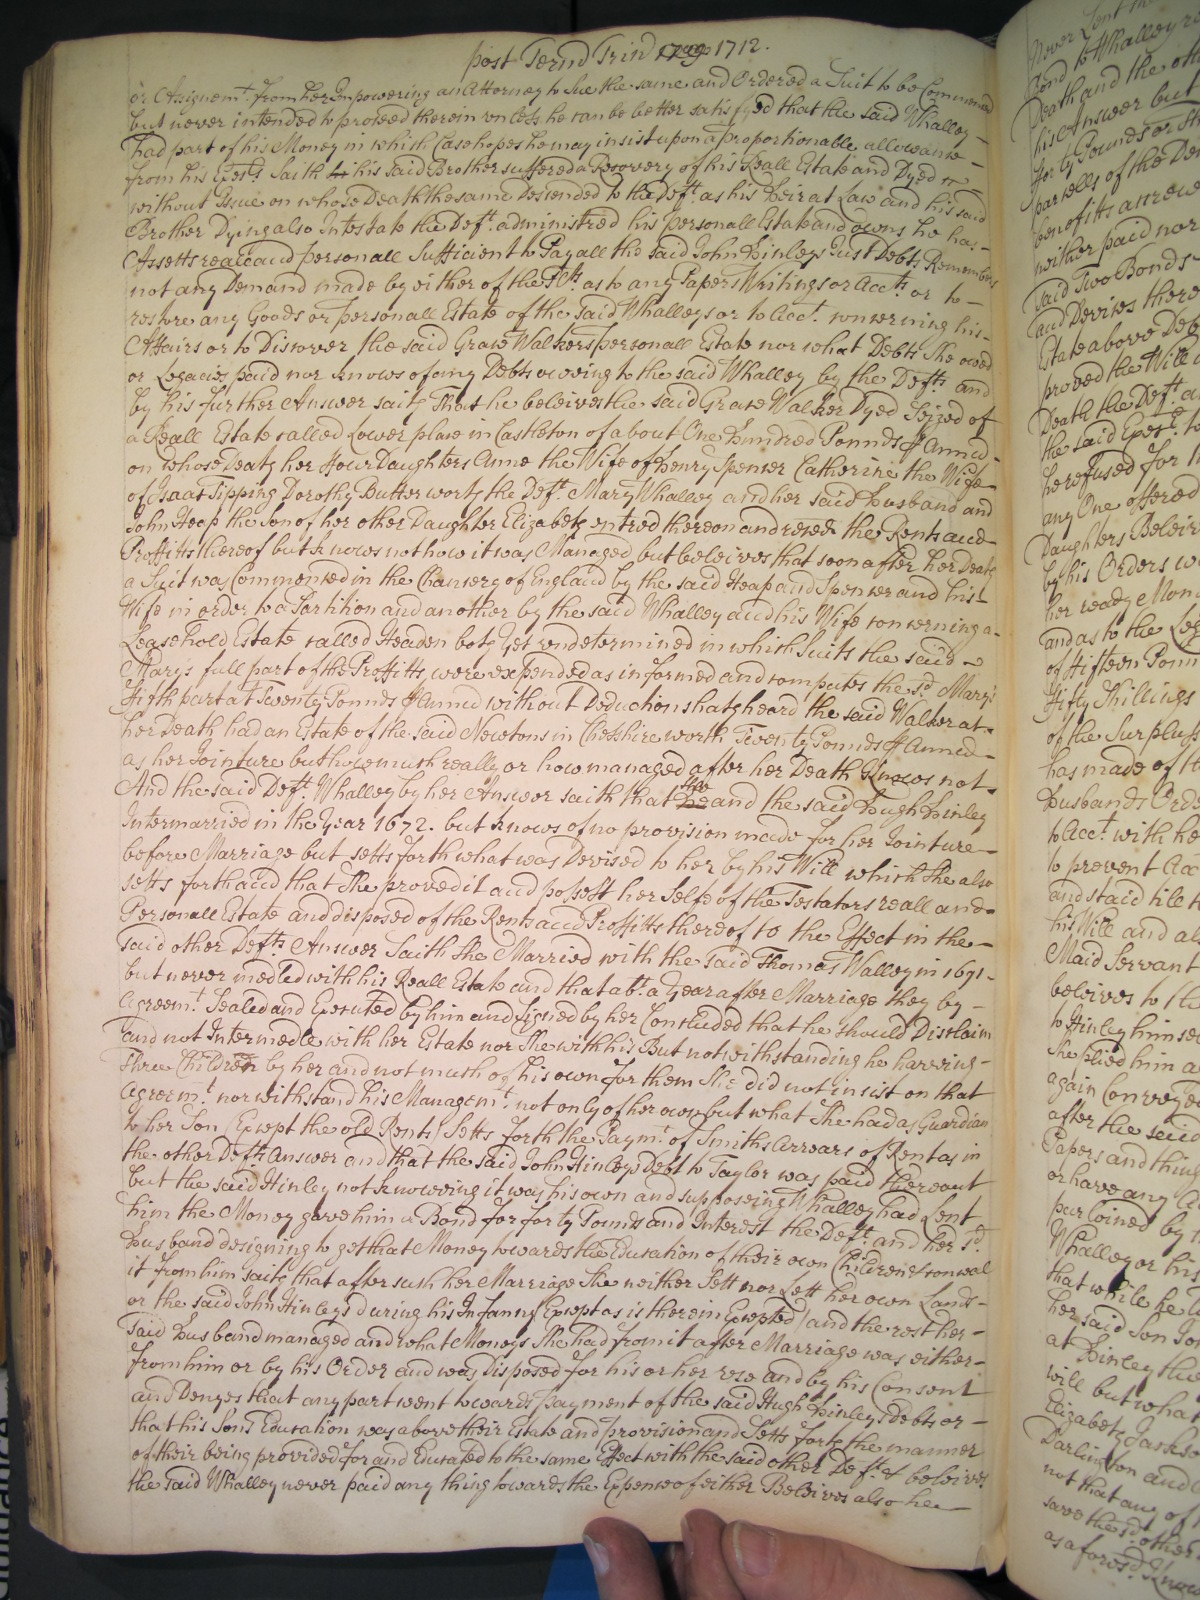 post Termd Trind 1712.
or Assignemt. from her Impowering an Attorney to Sue the same and Ordered a Suit to be Commenced
but never intended to proceed therein unless he can be better satisfyed that the said Whalley
had part of his Money in which Case hopes he may insist upon a proportionable allowance
from his Exects Saith his said Brother suffered a Recovery of his Reall Estate and Dyed
without Issue on whose Death the same Descended to the Deft. as his Heir at Law and his said
Brother Dying also Intestate the Deft. administred his personall Estate and owns he has
Assetts reall and personall Sufficient to Pay all the said John Hinleys Just Debts Remembers
not any Demand made by either of the Plts. as to any Papers Writings or Accts. or to
restore any Goods or personall Estate of the said Whalleys or to Acct. concerning his
Affairs or to Discover the said Grace Walkers personall Estate nor what Debts She owed
or Legacies paid nor knows of any Debts oweing to the said Whalley by the Defts and
by his further Answer saith That he beleives the said Grace Walker Dyed Seized of
a Reall Estate called Lower place in Castleton of about One Hundred Pounds P Annu
on whose Death her Four Daughters Anne the Wife of Henry Spencer Catherine the Wife
of Isaac Tipping Dorothy Butterworth the Deft. Mary Whalley and her said Husband and
John Heap the Son of her other Daughter Elizabeth entred thereon and recd the Rents and
Proffitts thereof but knows not how it was Managed but beleives that soon after her Death
a Suit was Commenced in the Chancery of England by the said Heap and Spencer and his
Wife in order to a Partition and another by the said Whalley and his Wife concerning a
Leasehold Estate called Headen both yet undetermined in which Suits the said
Mary's full part of the Proffitts were expended as informed and computes the sd. Mary's
Fifth part at Twenty Pounds P Annu without Deductions hath heard the said Walker at
her Death had an Estate of the said Newtons in Chesshire worth Twenty Pounds P Annu
as her Jointure but how much really or how managed after her Death Knows not
And the said Deft. Whalley by her Answer saith that he She and the said Hugh Hinley
Intermarried in the Year 1672. but knows of no provision made for her Jointure
before Marriage but setts forth what was Devised to her by his Will which She also
setts forth and that She proved it and possest her Selfe of the Testators reall and
Personall Estate and disposed of the Rents and Proffitts thereof to the Effect in the
said other Defts. Answer Saith She Married with the said Thomas Walley in 1691
but never medled with his Reall Estate and that abt. a Year after Marriage they by
Agreemt. Sealed and Executed by him and Signed by her Concluded that he should Disclaim
and not Intermedle with her Estate nor She with his But notwithstanding he haveing
Three Children by her and not much of his own for them She did not insist on that
Agreemt. nor withstand his Managemt. not only of her own but what She had as Guardian
to her Son Except the old Rents Setts forth the Paymt. of Smiths Arrears of Rent as in
the other Defts Answer and that the said John Hinleys Debt to Taylor was paid thereout
but the said Hinley not knoweing it was his own and supposeing Whalley had Lent
him the Money gave him a Bond for forty Pounds and Interest the Deft. and her sd.
Husband designing to get that Money towards the Education of their own Children & conceal
it from him saith that after such her Marriage She neither Sett nor Lett her own Lands
or the said John Hinleys during his Infancy (Except as is therein Excepted) and the rest her
said Husband managed and what Moneys She had from it after Marriage was either
from him or by his Order and was Disposed for his or her use and by his Consent
and Denyes that any part went towards payment of the said Hugh Hinleys Debts or
that his Sons Education was above their Estate and provision and Setts forth the manner
of their being provided for and Educated to the same Effect with the said other Deft. & beleives
the said Whalley never paid any thing towards the Expence of either Beleives also he
Death and the oth
his Answer but
forty Pounds or
parcells of the De
benefitts accrew
neither paid nor
said Two Bonds
and Devises there
Estate above Deb
proved the Will
Death the Deft. a
the said
he refused for
any One offered
Daughters Beleiv
by his Orders w
her ready Mon
and as to the Leg
of Fifteen Poun
Fifty Shillings
of the Surpluss
has made of th
Husbands Orde
to Acct. with he
to prevent Acc
and staid till
his Will and al
Maid Servant
beleives to
to Hinley himsel
She plied him a
again Conveyed
after the said
Papers and thing
or have any
purloined by
Whalley or his
that while he
her said Son Jo
at Hinley the
will but what
Elizabeth Jackso
Darlington and
not that any of
save the sd. other
as aforesd. Know